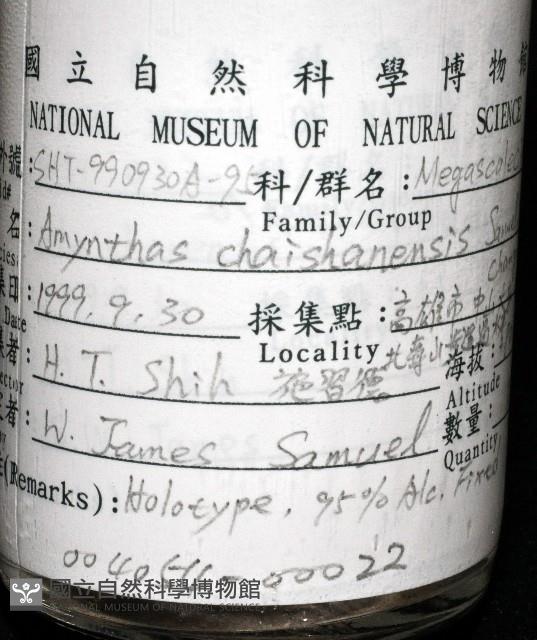 國立自然科學博物館
NATIONAL MUSEUM OF NATURAL SCIENCE
外號: SHT-990930A-95 科/群名: Megascolec
Family/Group
名: Amynthas chaishanensis Samuel
集日: 1999. 9. 30 採集點: 高雄市
Date Locality
北壽山 海拔:
H. T. Shih 施習德 Altitude
者: W. James Samuel 數量:
Quantity
(Remarks): Holotype, 95% Alc. Fixed
00022
國立自然科學博物館
NATIONAL MUSEUM OF NATURAL SCIENCE